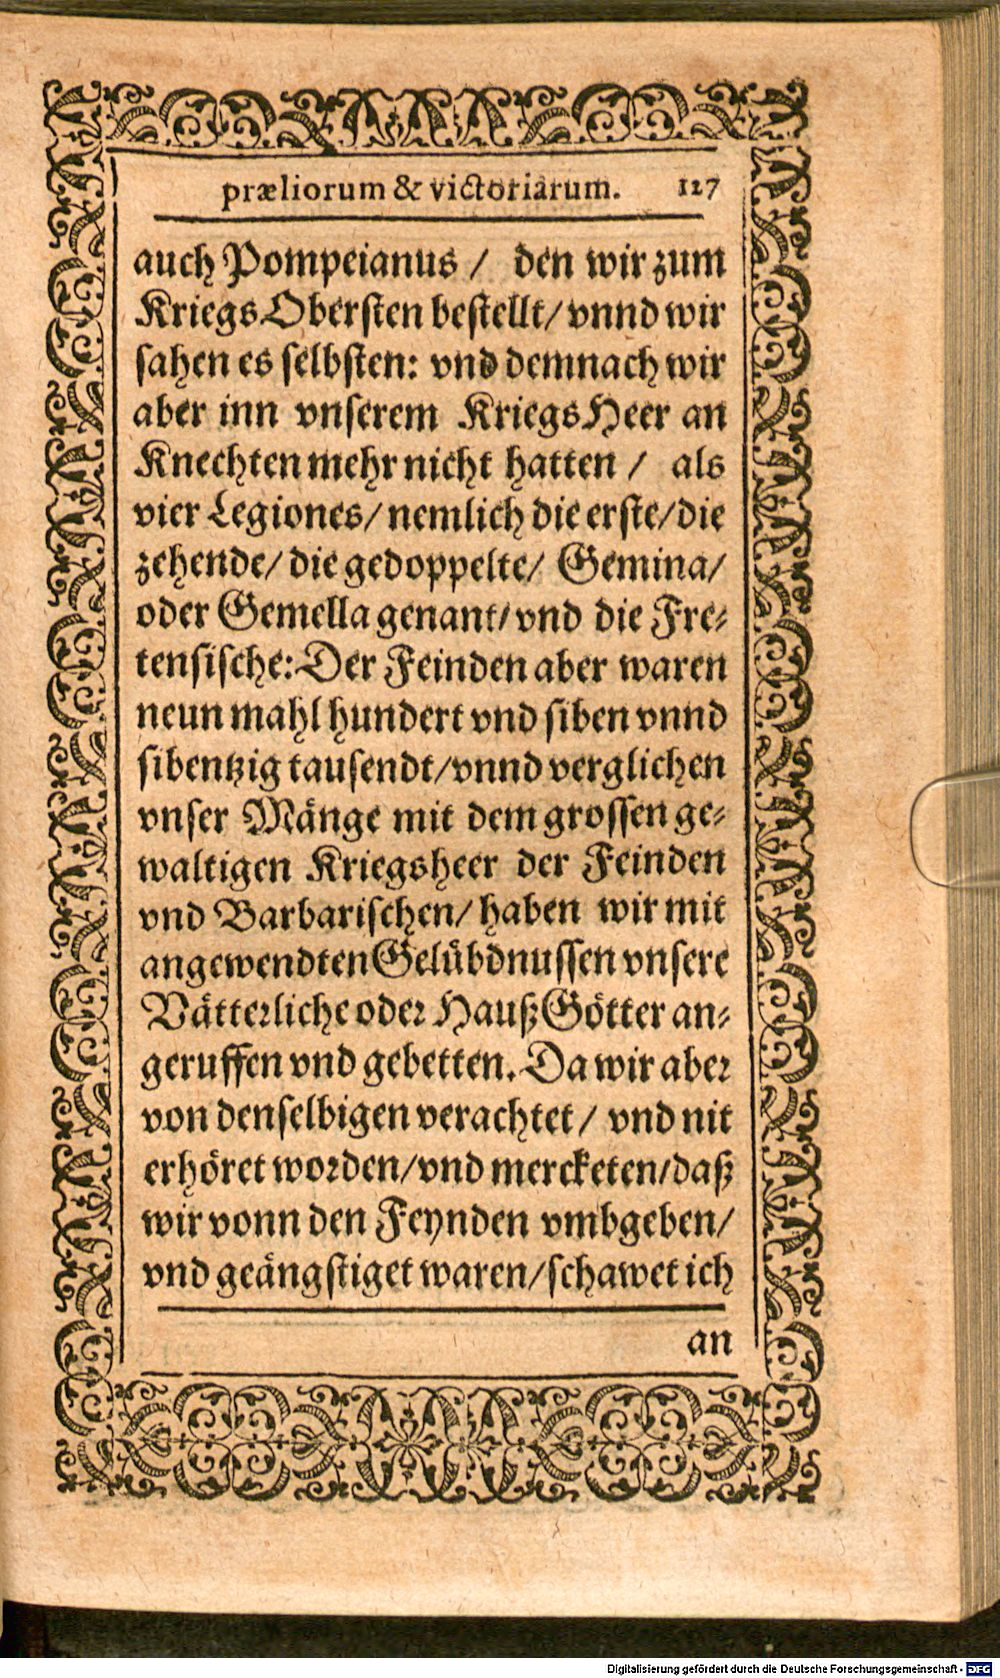 præliorum & victoriarum. 127
auch Pompeianus / den wir zum
Kriegs Obersten bestellt/ vnnd wir
sahen es selbsten: vnd demnach wir
aber inn vnserem Kriegs Heer an
Knechten mehr nicht hatten / als
vier Legiones/ nemlich die erste/ die
zehende/ die gedoppelte/ Gemina/
oder Gemella genant/ vnd die Fre-
tensische: Der Feinden aber waren
neun mahl hundert vnd siben vnnd
sibentzig tausendt/ vnnd verglichen
vnser Mänge mit dem grossen ge-
waltigen Kriegsheer der Feinden
vnd Barbarischen/ haben wir mit
angewendten Gelübdnussen vnsere
Vätterliche oder Hauß Götter an-
geruffen vnd gebetten. Da wir aber
von denselbigen verachtet / vnd nit
erhöret worden/ vnd mercketen/ daß
wir vonn den Feynden vmbgeben/
vnd geängstiget waren/ schawet ich
an
Digitalisierung gefördert durch die Deutsche Forschungsgemeinschaft - DFG